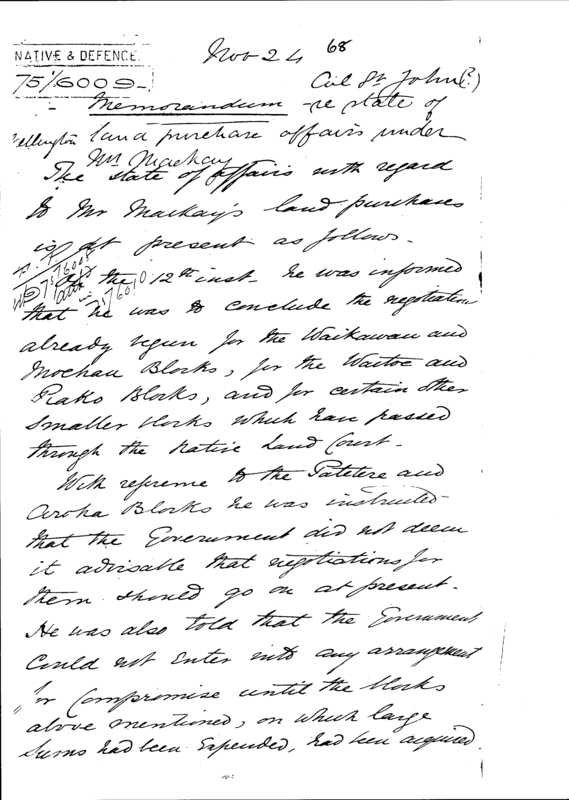 NATIVE & DEFENCE.
75/6009
Nov 24
68
Col St John(?)
Memorandum - re state of
Wellington land purchase affairs under
Mr Mackay
The state of affairs with regard
to Mr Mackay's land purchases
is at present as follows.
the 12th inst. he was informed
that he was to conclude the negotiation
already begun for the Waikawau and
Moehau Blocks, for the Waitoa and
Piako Blocks, and for certain other
smaller blocks which have passed
through the Native Land Court.
With reference to the Patetere and
Aroha Blocks he was instructed
that the Government did not deem
it advisable that negotiations for
them should go on at present.
He was also told that the Government
could not enter into any arrangement
or compromise until the blocks
above mentioned, on which large
sums had been expended, had been acquired.